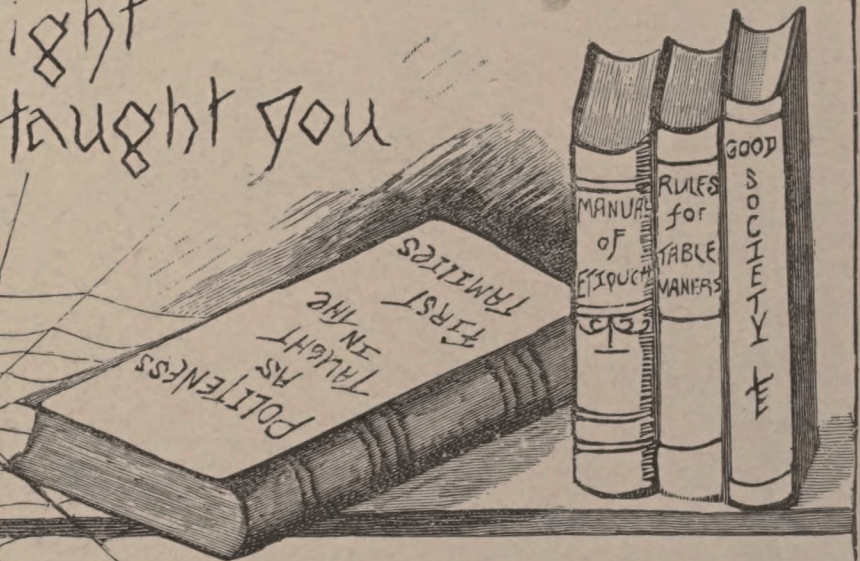 ight
taught you
POLITENESS
AS
TAUGHT
IN THE
FIRST
FAMILIES
MANUAL
of
RULES
for
TABLE
MANERS
GOOD
SOCIETY